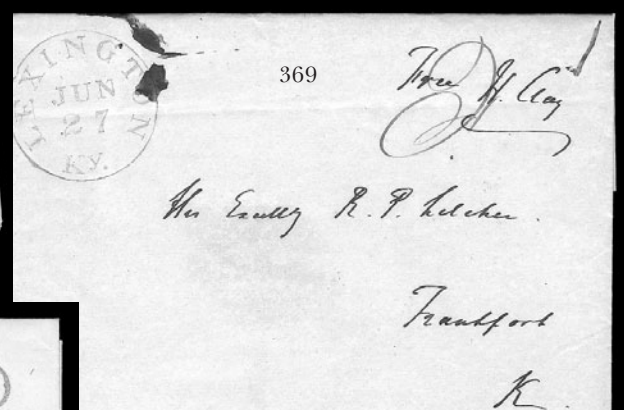 LEXINGTON
JUN
27
Ky.
369
Free H. Clay
His Excelly R. P. Letcher.
Frankfort
K